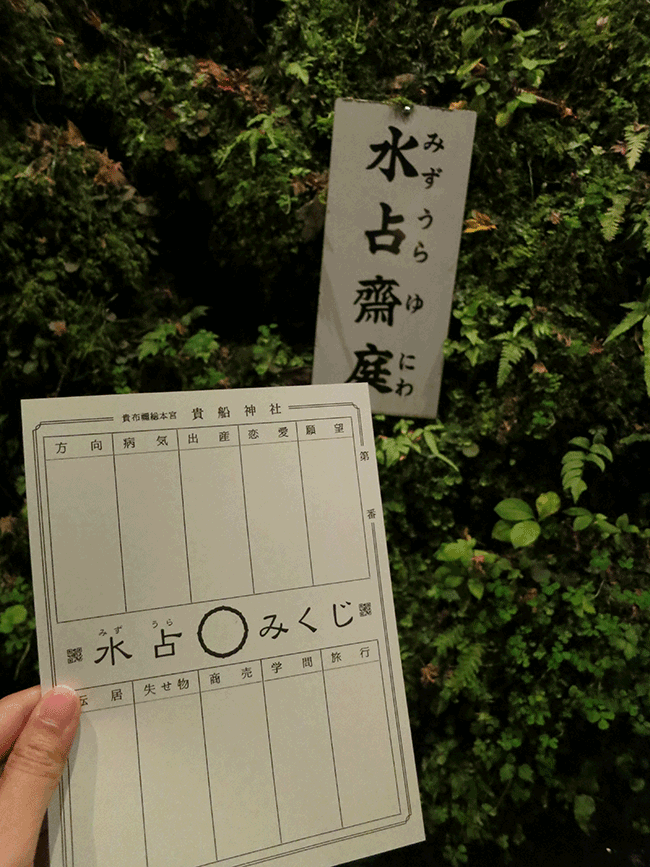 水占齋庭
みずうらゆにわ
貴布禰総本宮 貴船神社
第 番
願望
恋愛
出産
病気
方向
みず うら
水占 みくじ
旅行
学問
商売
失せ物
転居